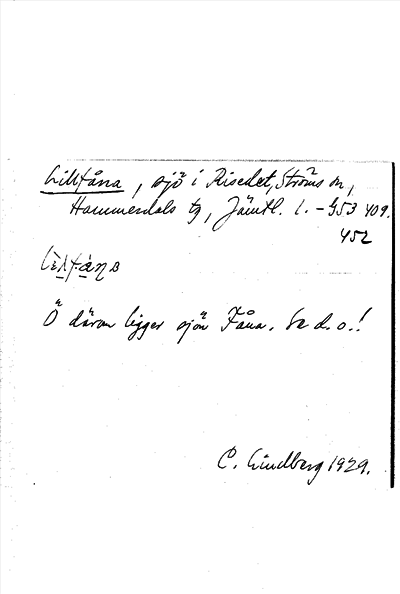 Lilltåna, sjö i Risedet, Ströms sn,
Hammerdals tg, Jämtl. l. – G53 409.
452
Ö därom ligger sjön Tåna. Se d. o.!
C. Lindberg 1929.